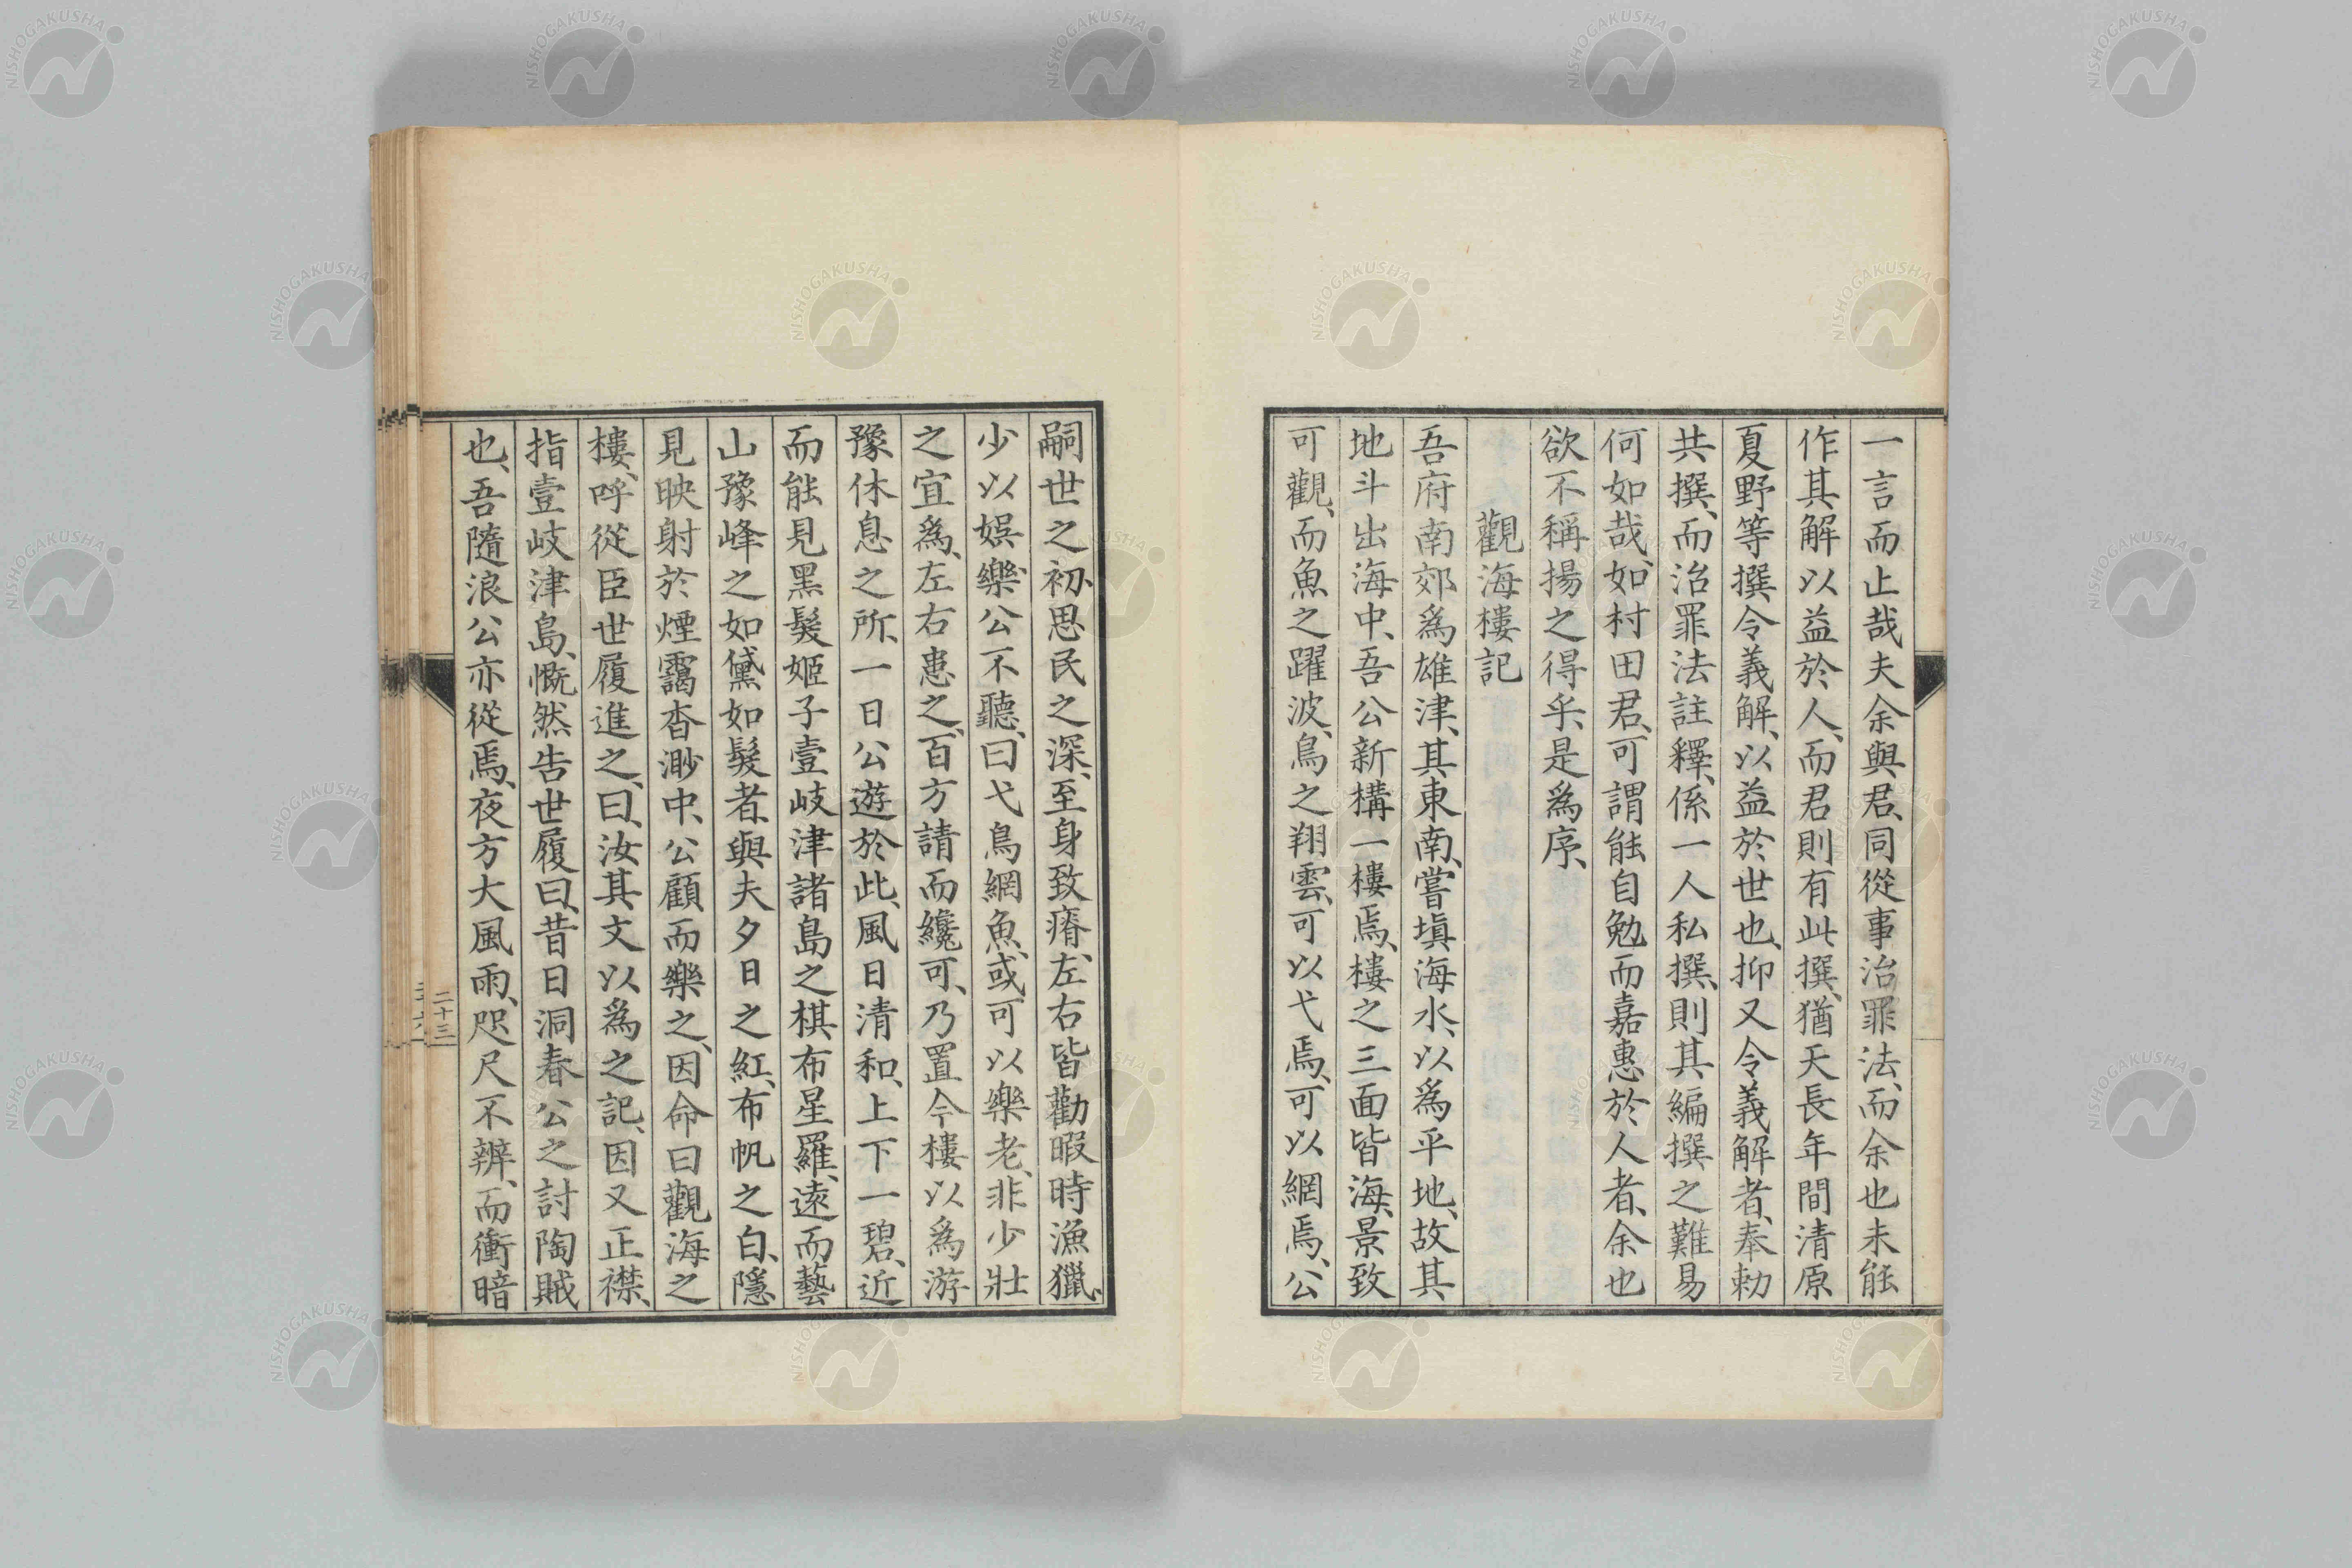 一言而止哉夫余與君、同從事治罪法、而余也未能
作其解以益於人、而君則有此撰、猶天長年間清原
夏野等撰令義解、以益於世也、抑又令義解者、奉勅
共撰、而治罪法註釋、係一人私撰、則其編撰之難易
何如哉、如村田君、可謂能自勉而嘉惠於人者、余也
欲不稱揚之得乎、是爲序、
觀海樓記
吾府南郊爲雄津、其東南、嘗塡海水、以爲平地、故其
地斗出海中、吾公新構一樓焉、樓之三面皆海、景致
可觀、而魚之躍波、鳥之翔雲、可以弋焉、可以網焉、公
嗣世之初、思民之深、至身致瘠、左右皆勸暇時漁獵、
少以娛樂、公不聽、曰弋鳥網魚、或可以樂老、非少壯
之宜爲、左右患之、百方請而纔可、乃置今樓以爲游
豫休息之所、一日公遊於此、風日清和、上下一碧、近
而能見黑髮姬子壹岐津諸島之棋布星羅、遠而藝
山豫峰之如黛如髮者、與夫夕日之紅、布帆之白、隱
見映射於煙靄杳渺中、公顧而樂之、因命曰觀海之
樓、呼從臣世履進之、曰、汝其文以爲之記、因又正襟、
指壹岐津島、慨然告世履曰、昔日洞春公之討陶賊
也、吾隨浪公亦從焉、夜方大風雨、咫尺不辨、而衝暗
二十三
NISHOGAKUSHA